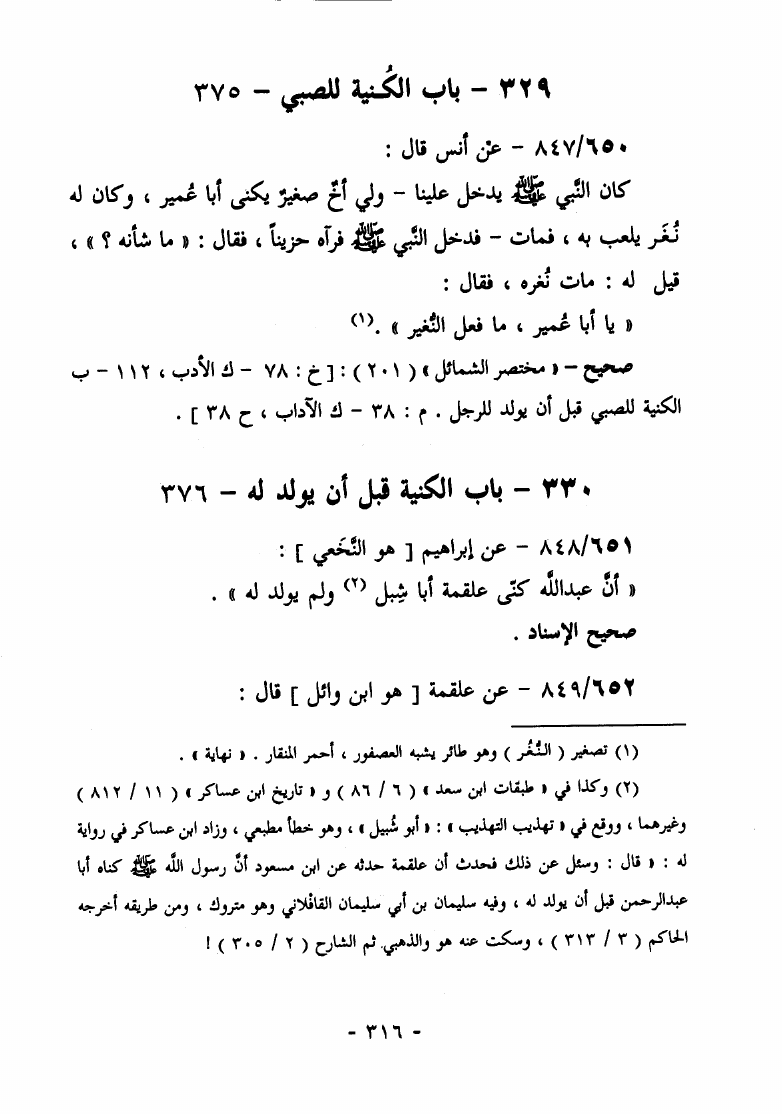 ٣٢٩ - باب الكُنية للصبي - ٣٧٥
٨٤٧/٦٥٠ - عنْ أنس قال :
كان النَّبي ﷺ يدخل علينا - ولي أخٌ صغيرٌ يكنى أبا عُمير ، وكان له
نُغَر يلعب به ، فمات - فدخل النَّبي ﷺ فرآه حزيناً ، فقال : « ما شأنه ؟ » ،
قيل له : مات نُغره ، فقال :
« يا أبا عُمير ، ما فعل النُّغير » .(١)
صحيح - « مختصر الشمائل » ( ٢٠١ ) : [ خ : ٧٨ - ك الأدب ، ١١٢ - ب
الكنية للصبي قبل أن يولد للرجل . م : ٣٨ - ك الآداب ، ح ٣٨ ] .
٣٣٠ - باب الكنية قبل أن يولد له - ٣٧٦
٨٤٨/٦٥١ - عن إبراهيم [ هو النَّخَعي ] :
« أنَّ عبداللَّه كنّى علقمة أبا شِبل (٢) ولم يولد له » .
صحيح الإسناد .
٨٤٩/٦٥٢ - عن علقمة [ هو ابن وائل ] قال :
(١) تصغير ( النُّغُر ) وهو طائر يشبه العصفور ، أحمر المنقار . « نهاية » .
(٢) وكذا في « طبقات ابن سعد » ( ٦ / ٨٦ ) و « تاريخ ابن عساكر » ( ١١ / ٨١٢ )
وغيرهما ، ووقع في « تهذيب التهذيب » : « أبو شُبيل » ، وهو خطأ مطبعي ، وزاد ابن عساكر في رواية
له : « قال : وسئل عن ذلك فحدث أن علقمة حدثه عن ابن مسعود أنَّ رسول اللَّه ﷺ كناه أبا
عبدالرحمن قبل أن يولد له ، وفيه سليمان بن أبي سليمان القافْلاني وهو متروك ، ومن طريقه أخرجه
الحاكم ( ٣ / ٣١٣ ) ، وسكت عنه هو والذهبي. ثم الشارح ( ٢ / ٣٠٥ ) !
- ٣١٦ -